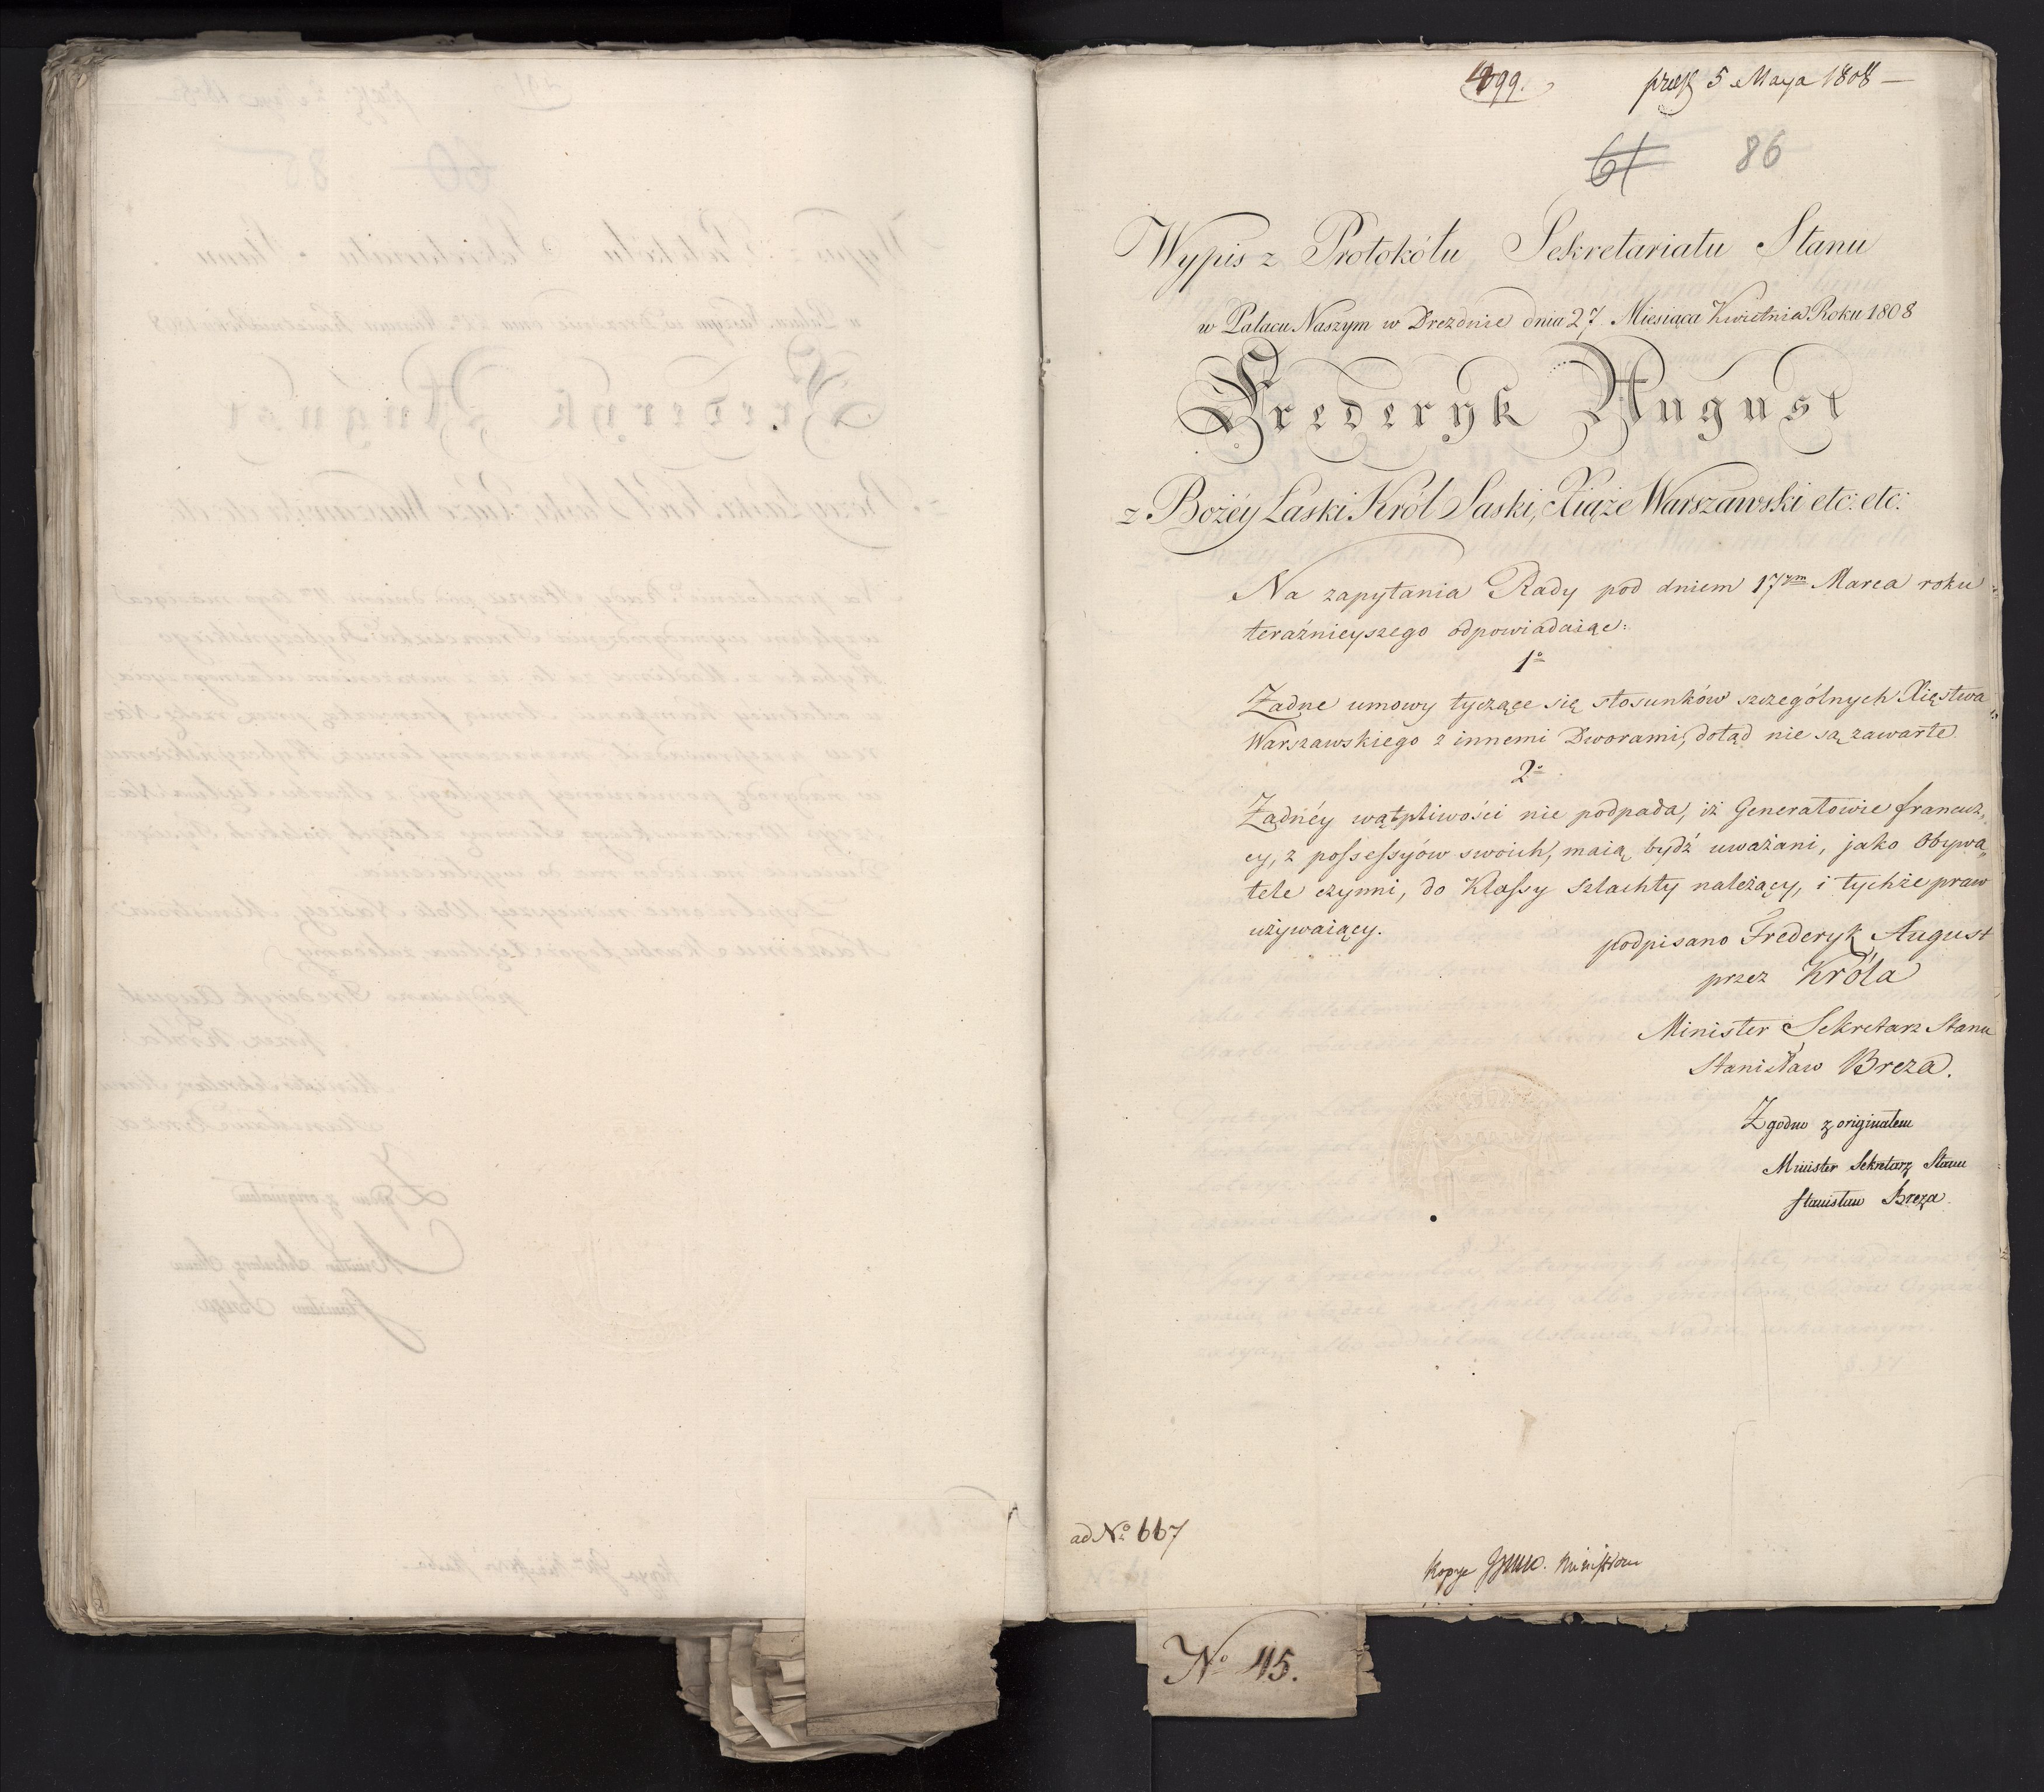 1099.
præs 5 Maya 1808 —
61 86
Wypis z Protokółu Sekretariatu Stanu
w Pałacu Naszym w Dreznie dnia 27 Miesiąca Kwietnia Roku 1808
Frederyk August
z Bożéy Łaski Król Saski, Xiąże Warszawski etc: etc:
Na zapytania Rady pod dniem 17ym Marca roku
teraźnieyszego odpowiadaiąc:
1o
Żadne umowy tyczące się stosunków szczególnych Xięstwa
Warszawskiego z innemi Dworami, dotąd nie są zawarte
2o
Żadnéy wątpliwości nie podpada, iż Generałowie francuz,,
cy, z possessyów swoich, maią bydź uważani, jako Obywa,,
tele czynni, do Klassy szlachty należący, i tychże praw
używaiący.
podpisano Frederyk August
przez Króla
Minister Sekretarz Stanu
Stanisław Breza.
Zgodno z originałem
Minister Sekretarz Stanu
Stanisław Breza
ad No 667
Kopye
No 45.